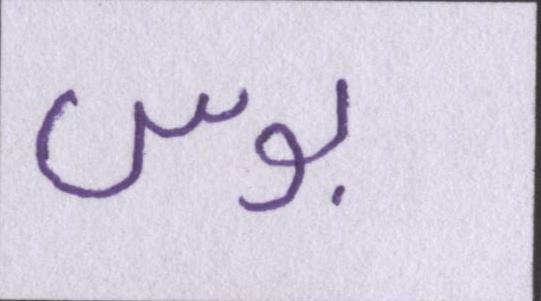 بوس